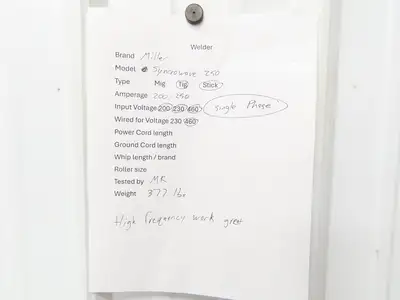 Welder
Brand Miller
Model Syncrowave 250
Type Mig Tig Stick
Amperage 200, 250
Input Voltage 200 230 460 single Phase
Wired for Voltage 230 460
Power Cord length
Ground Cord length
Whip length / brand
Roller size
Tested by MR
Weight 377 lbs
High frequency work great